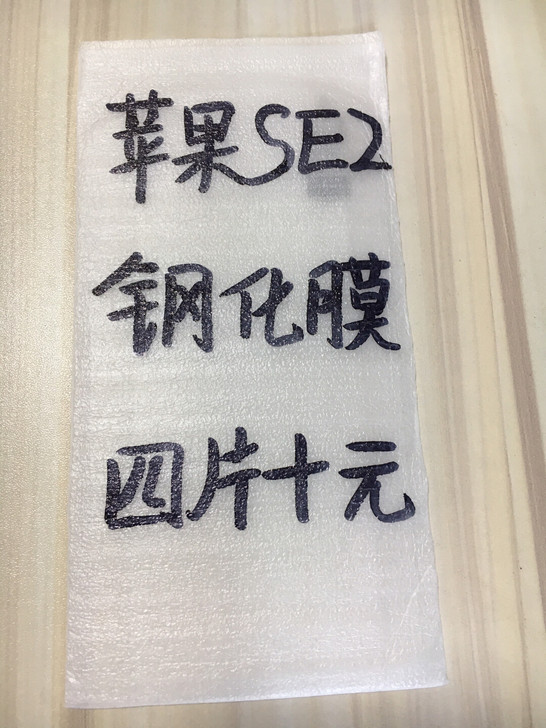 苹果SE2
钢化膜
四片十元